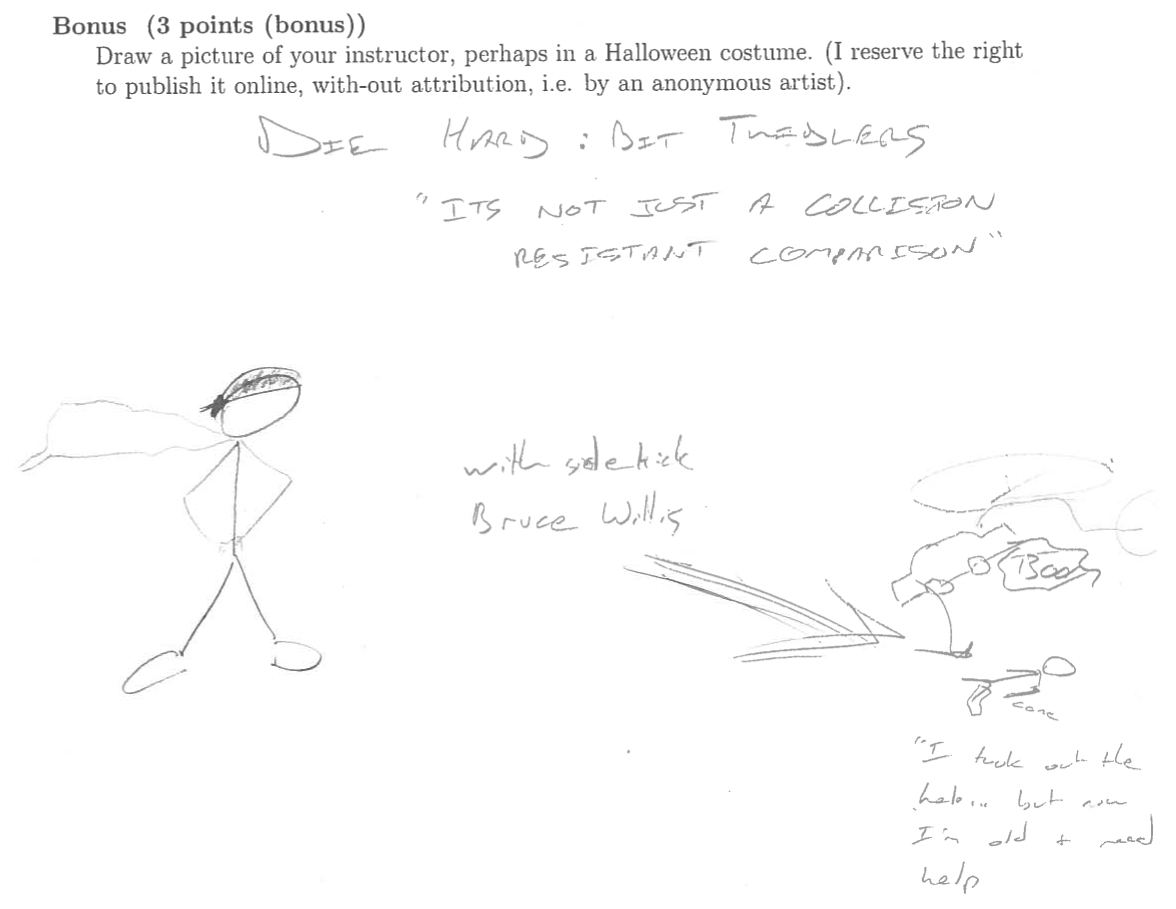 Bonus (3 points (bonus))
Draw a picture of your instructor, perhaps in a Halloween costume. (I reserve the right
to publish it online, with-out attribution, i.e. by an anonymous artist).
DIE HARD : BIT TWIDLERS
"ITS NOT JUST A COLLISION
RESISTANT COMPARISON"
with sidekick
Bruce Willis
Boom
cane
"I took out the
helo... but now
I'm old + need
help